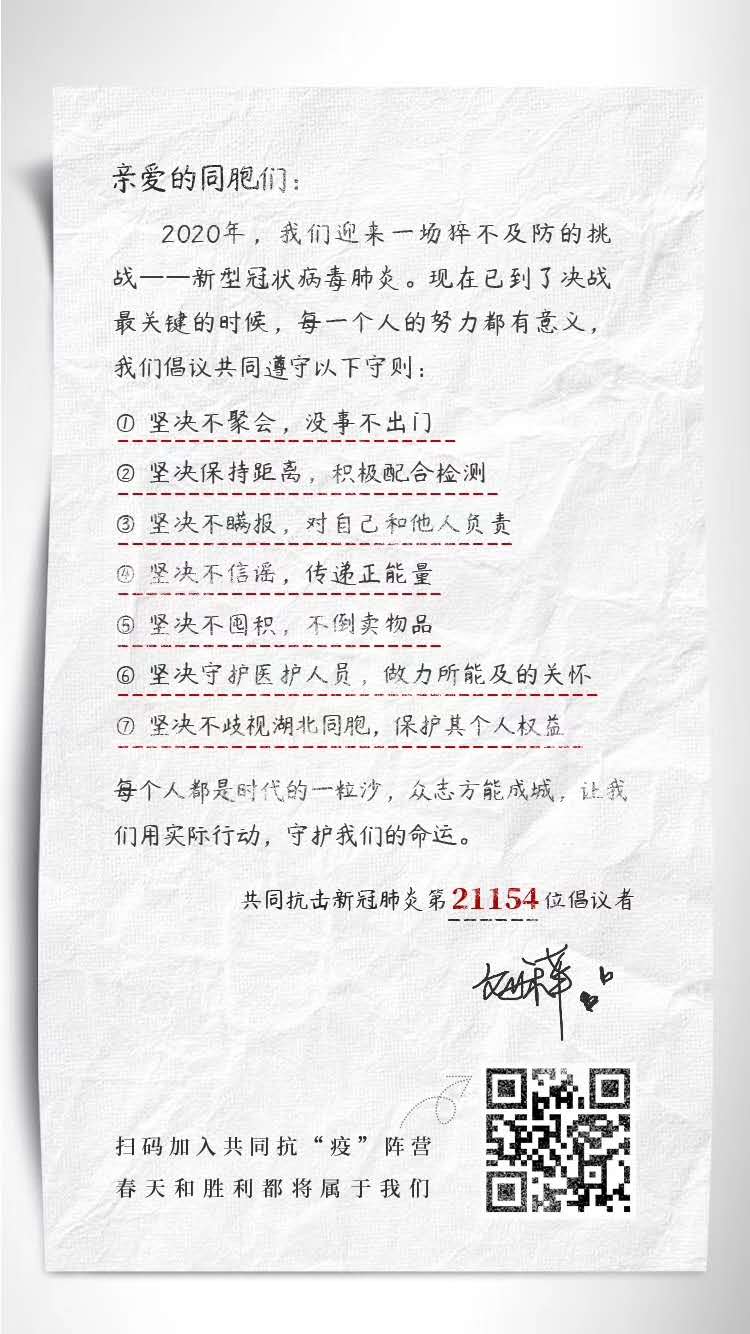 亲爱的同胞们：
2020年，我们迎来一场猝不及防的挑
战——新型冠状病毒肺炎。现在已到了决战
最关键的时候，每一个人的努力都有意义，
我们倡议共同遵守以下守则：
① 坚决不聚会，没事不出门
② 坚决保持距离，积极配合检测
③ 坚决不瞒报，对自己和他人负责
④ 坚决不信谣，传递正能量
⑤ 坚决不囤积，不倒卖物品
⑥ 坚决守护医护人员，做力所能及的关怀
⑦ 坚决不歧视湖北同胞，保护其个人权益
每个人都是时代的一粒沙，众志方能成城，让我
们用实际行动，守护我们的命运。
共同抗击新冠肺炎第21154位倡议者
扫码加入共同抗“疫”阵营
春天和胜利都将属于我们